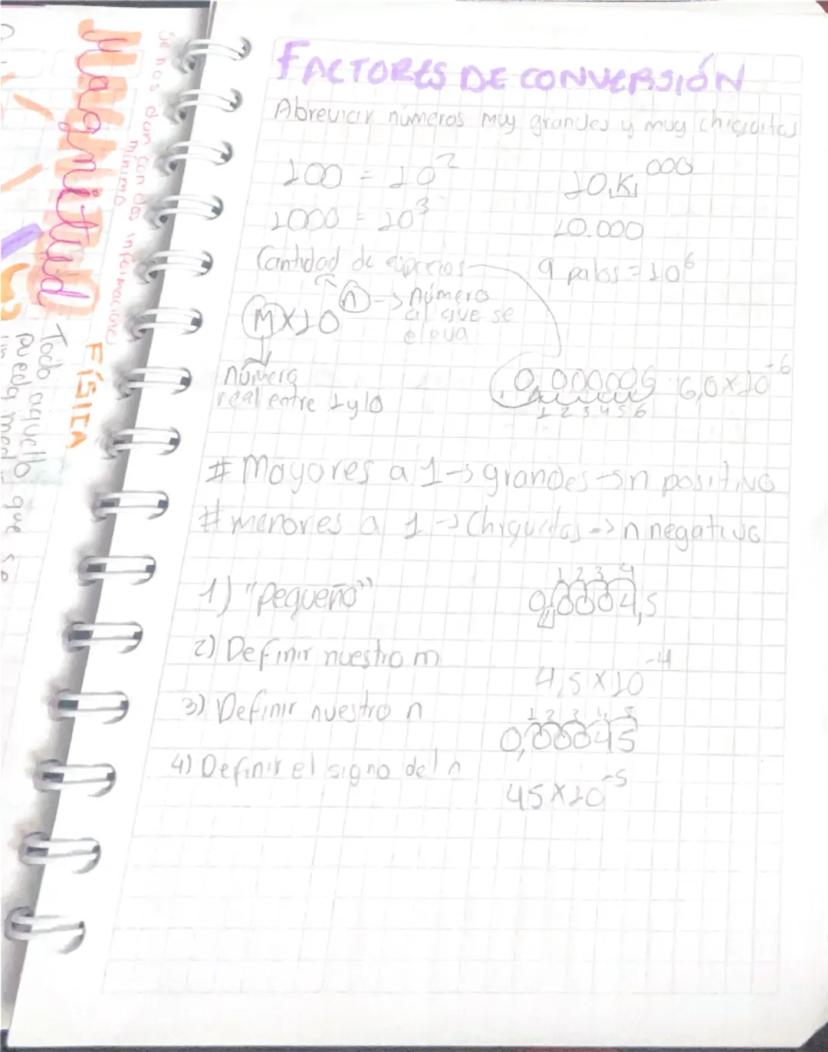 FACTORES DE CONVERSIÓN
Abreviar números muy grandes y muy chiquitos
100 = 10²
10.K 000
1000 = 10³
10.000
Cantidad de espacios
9 palos = 10⁶
M×10ⁿ -> número al que se eleva
número real entre 1 y 10
0,000006 6,0×10⁻⁶
1 2 3 4 5 6
# Mayores a 1 -> grandes -> n positivo
# menores a 1 -> Chiquitos -> n negativo
1) "pequeño"
1 2 3 4
0,0004,5
2) Definir nuestro m
4,5×10⁻⁴
3) Definir nuestro n
1 2 3 4 5
0,00045
4) Definir el signo del n
45×10⁻⁵
Magnitud
Se nos dan información
mínimo
FÍSICA
Todo aquello que se
pueda